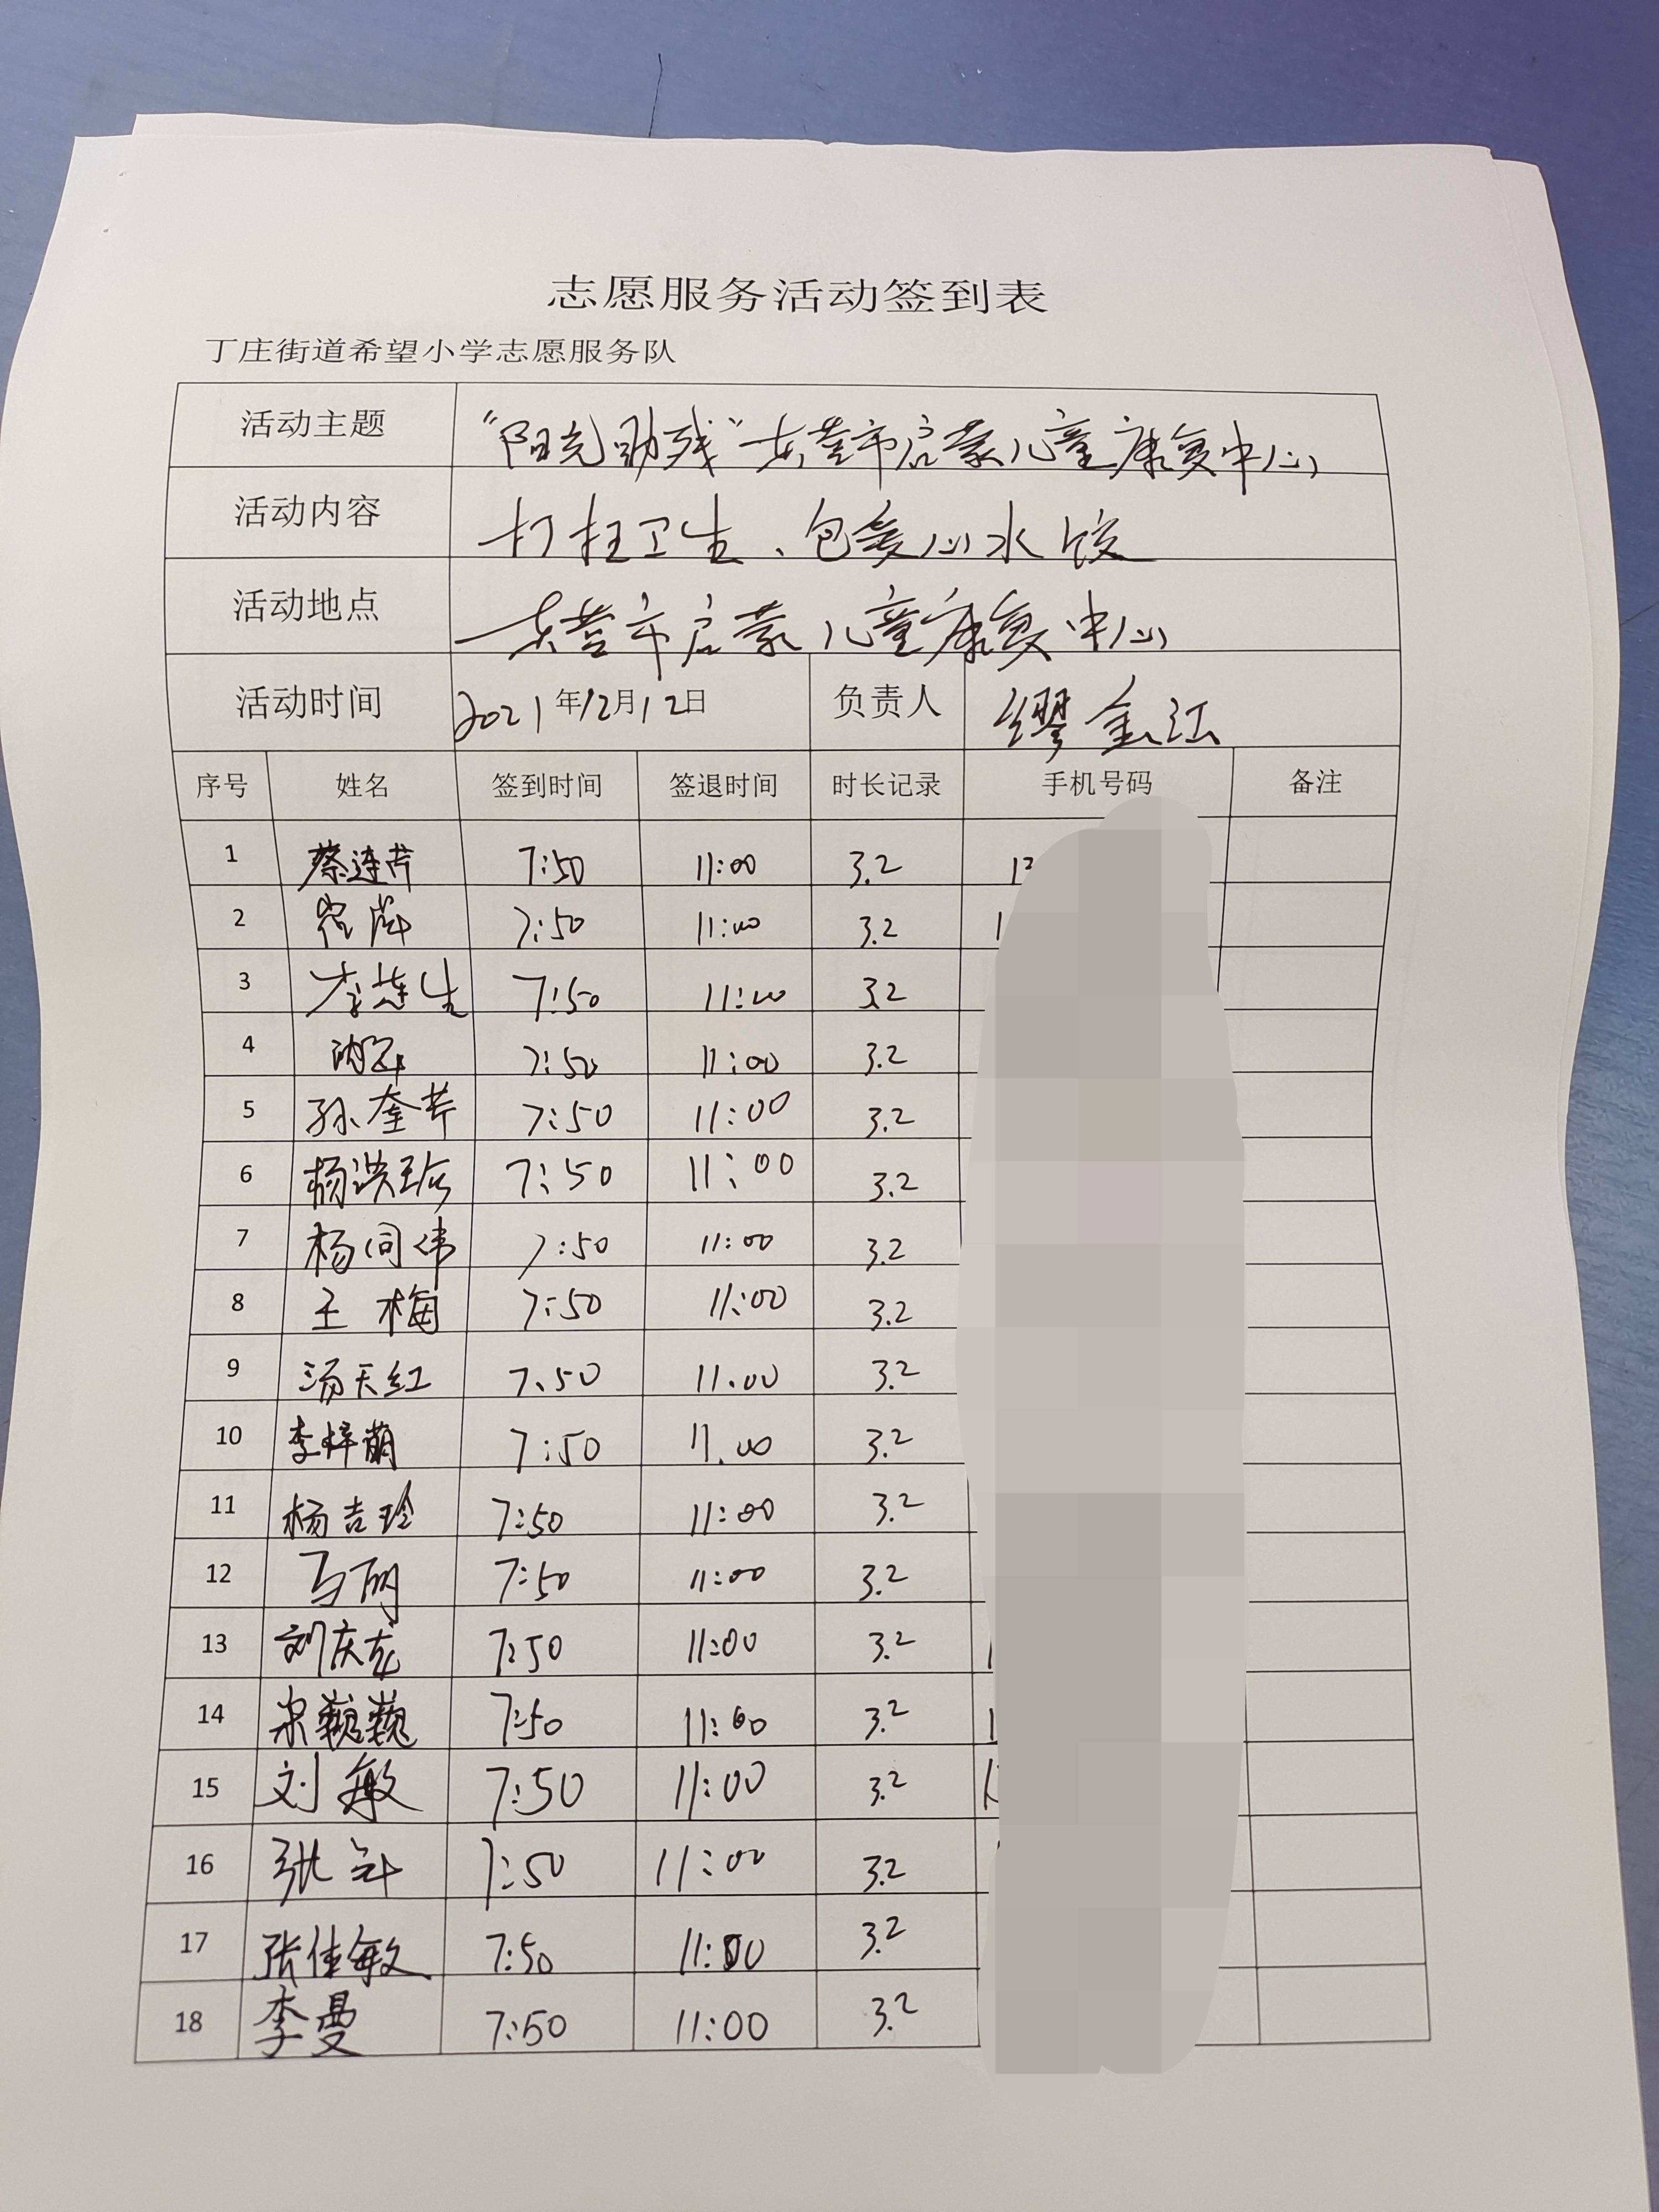 志愿服务活动签到表
丁庄街道希望小学志愿服务队
活动主题 “阳光助残”东营市启蒙儿童康复中心
活动内容 打扫卫生、包爱心水饺
活动地点 东营市启蒙儿童康复中心
活动时间 2021年12月12日 负责人 缪金江
序号 姓名 签到时间 签退时间 时长记录 手机号码 备注
1 蔡连芹 7:50 11:00 3.2
2 7:50 11:00 3.2
3 李莲生 7:50 11:00 3.2
4 7:50 11:00 3.2
5 孙奎芹 7:50 11:00 3.2
6 杨洪珍 7:50 11:00 3.2
7 杨同伟 7:50 11:00 3.2
8 王梅 7:50 11:00 3.2
9 汤天红 7:50 11:00 3.2
10 李梓萌 7:50 11:00 3.2
11 杨吉玲 7:50 11:00 3.2
12 马丽 7:50 11:00 3.2
13 刘庆龙 7:50 11:00 3.2
14 宋巍巍 7:50 11:00 3.2
15 刘敏 7:50 11:00 3.2
16 张 7:50 11:00 3.2
17 张佳敏 7:50 11:00 3.2
18 李曼 7:50 11:00 3.2